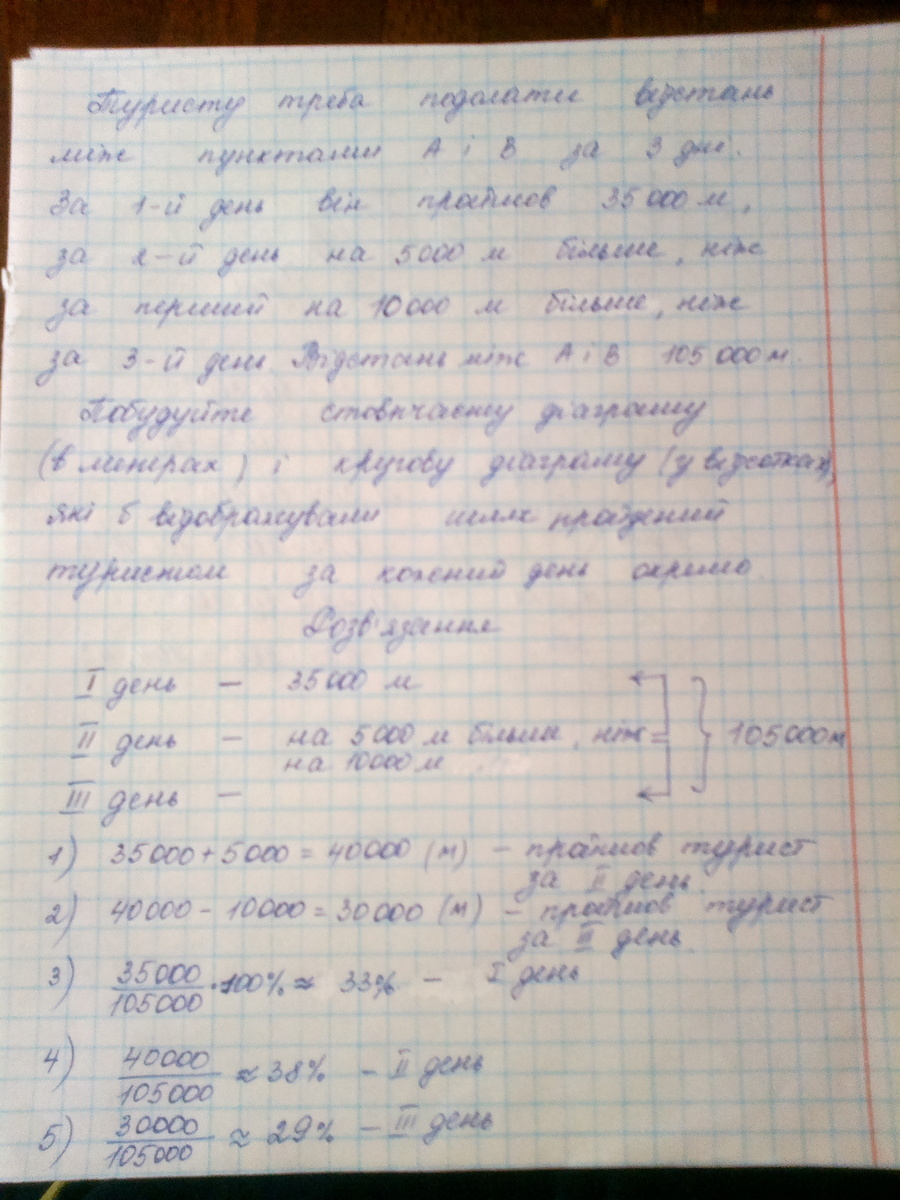 Туристу треба подолати відстань
між пунктами А і В за 3 дні.
За 1-й день він пройшов 35 000 м,
за 2-й день на 5000 м більше, ніж
за перший на 10 000 м більше, ніж
за 3-й день Відстань між А і В 105 000 м.
Побудуйте стовпчасту діаграму
(в метрах) і кругову діаграму (у відсотках),
які б відображували шлях пройдений
туристом за кожний день окремо.
Розв'язання
I день – 35 000 м
II день – на 5000 м більше, ніж 105000м
на 10000 м
III день –
1) 35 000 + 5 000 = 40000 (м) – пройшов турист
за II день.
2) 40000 – 10000 = 30000 (м) – пройшов турист
за III день.
3) 35000/105000 · 100% ≈ 33% – I день
4) 40000/105000 ≈ 38% – II день
5) 30000/105000 ≈ 29% – III день